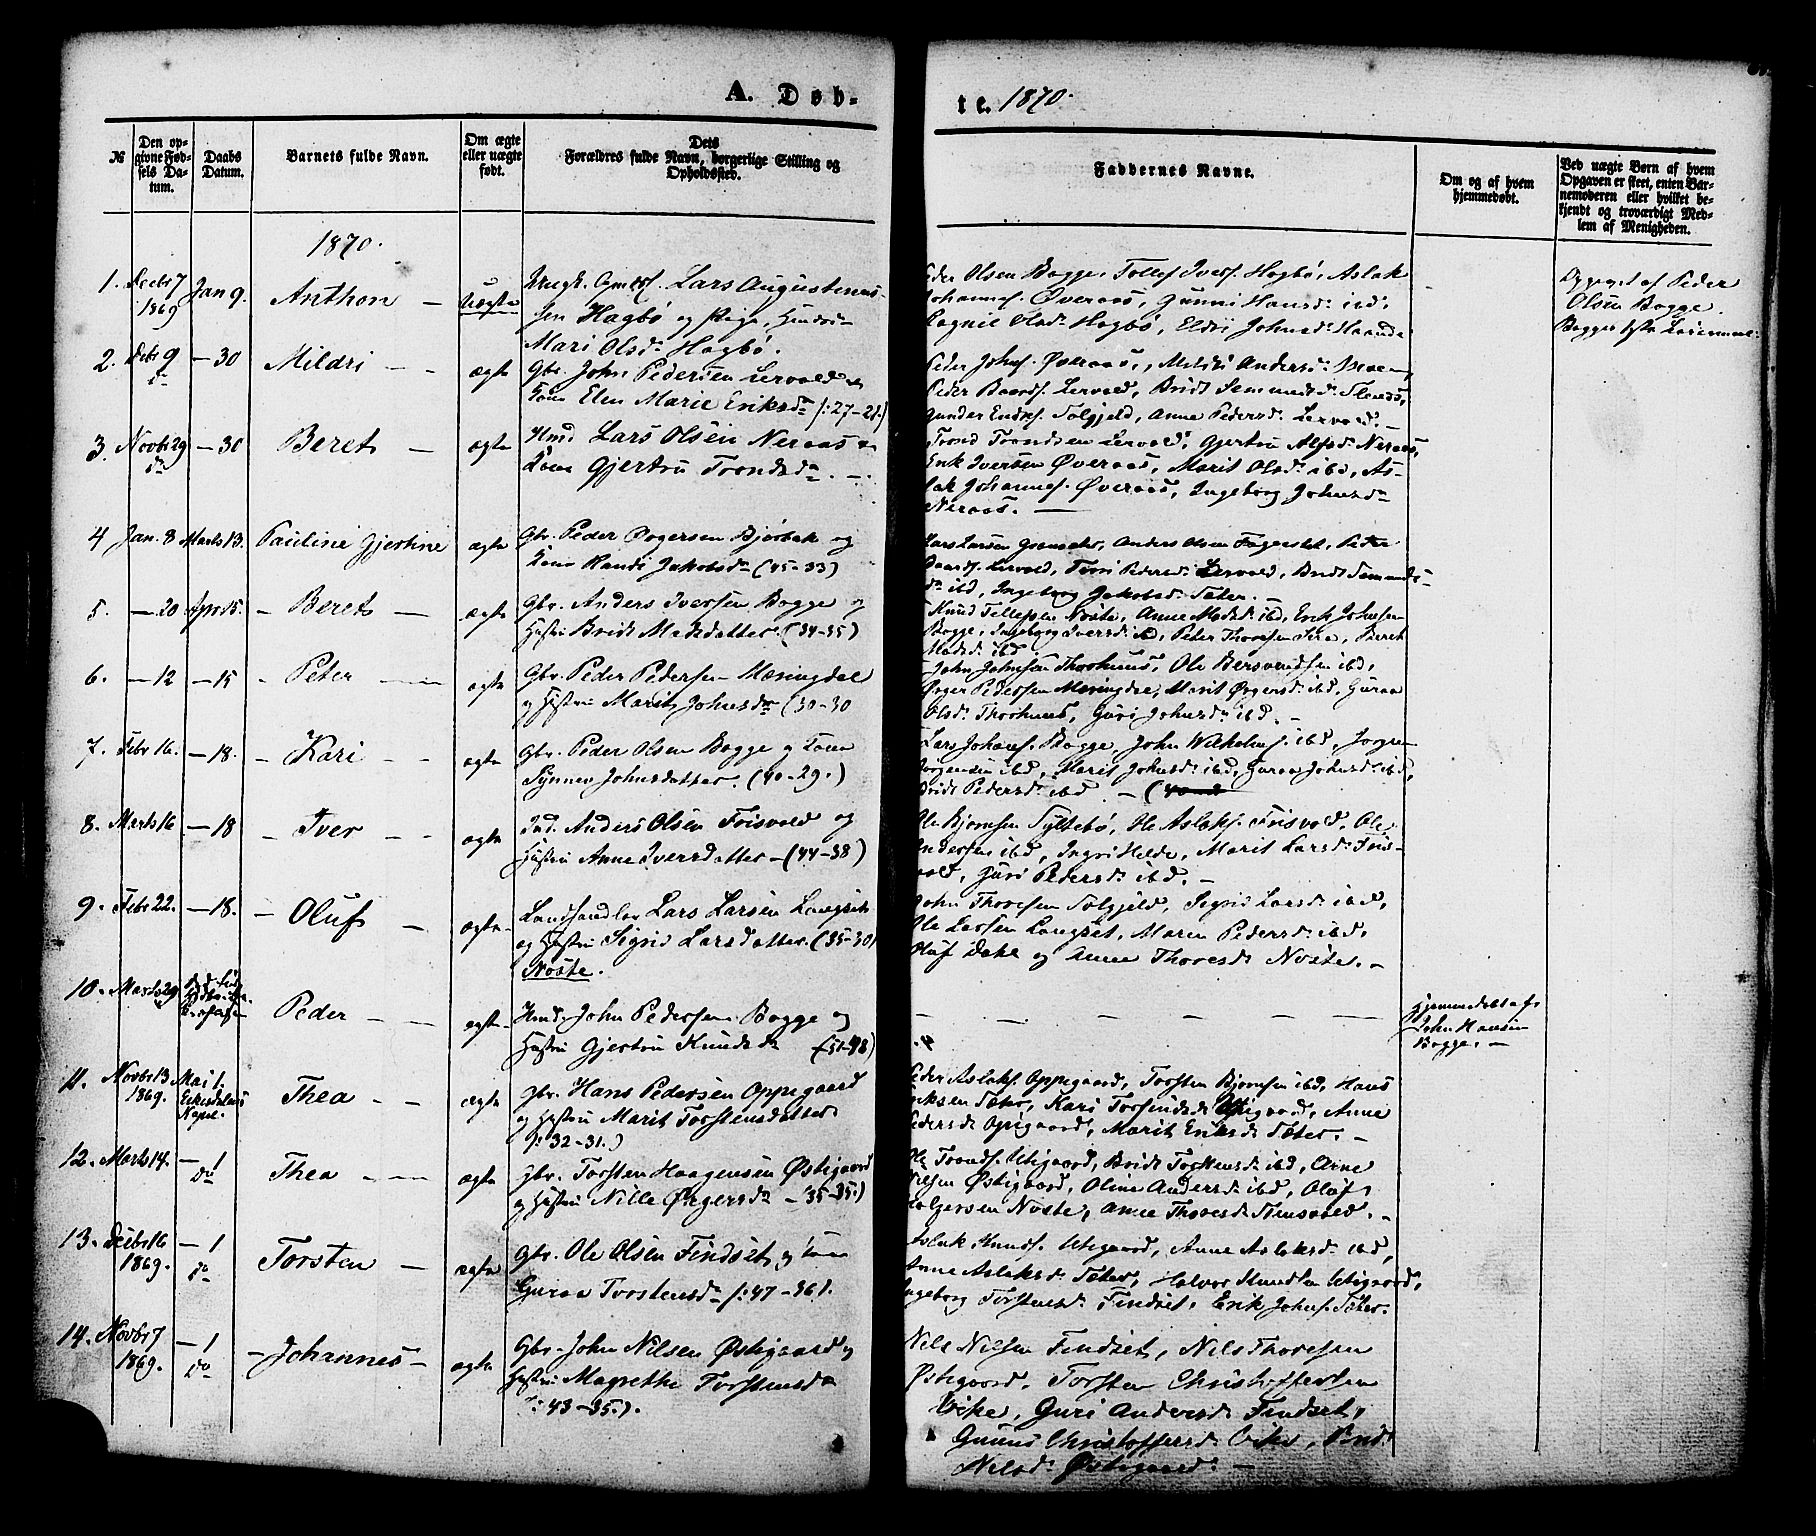 A. Døb-
te. 1870.
№
Den op-
givne Fød-
sels Da-
tum.
Daabs
Datum.
Barnets fulde Navn.
Om ægte
eller uægte
født.
Dets
Forældres fulde Navn, borgerlige Stilling og
Opholdssted.
Faddernes Navne.
Om og af hvem
hjemmedøbt.
Ved uægte Børn af hvem
Opgaven er skeet, enten Bar-
nemoderen eller hvilket be-
kjendt og troværdigt Med-
lem af Menigheden.
1870.
1. Decbr 7 1869 Jan 9. Anthon — uægte
Lars Augustinus-
sen Hagbø og Pige,
Mari Olsdr Hagbø.
Olsen Bogge, Tollef Ivers. Hagbø, Aslak
Johannes. Øveraas, Gunni Hansdr ibd.
Ragnil Olsdr Hagbø, Eldri Johnsdr
Opgivet af Peder
Olsen Bogge.
2. Debr 9 do — 30 Mildri — ægte
Gbr. John Pedersen Lervold og
Kone Elen Marie Eriksdr (:27-21.)
Peder Johns. Øveraas, Mildri Andersdr
Peder Baards. Lervold, Brit
Gunder Endres. Solgjeld, Anne Pedersdr Lervold. —
3. Novbr 29 do — 30 Beret — ægte
Hmd Lars Olsen Neraas og
Kone Gjertru Trondsdr. —
Trond Trondsen Lervold, Gjertru Neraas,
Erik Iversen Øveraas, Marit Olsdr ibd, As-
lak Johannes. Øveraas, Ingeborg Johnsdr
Neraas. —
4 Jan. 8 Marts 13. Pauline Gjertine ægte
Gbr. Peder Bjørbak og
Kone Randi Jakobsdr (45-33)
Lars Larsen Anders Olsen Peter
Baards. Lervold, Pedersdr Lervold, Brit
ibd, Ingeborg Jakobsdr Sæter. —
5. — 20 Apr 15. — Beret — ægte
Gbr. Anders Iversen Bogge og
Hustru Brit Madsdatter. (34-35)
Knud Tellefsen Nøste, Anne Madsdr ibd, Erik Johnsen
Bogge, Ingeborg Iversdr ibd, Peter Thoresen Beret
Madsdr ibd
6. — 12 — 15 — Peter — ægte
Gbr. Peder Pedersen Meringdal
og Hustru Marit Johnsdr (30-30
John Johnsen Thorhuus, Ole ibd,
Ørger Pedersen Meringdal, Marit Ørgersdr ibd, Guraa
Olsdr Thorhuus, Guri Johnsdr ibd. —
7. Febr 16. — 18. — Kari — ægte
Gbr. Peder Olsen Bogge og Kone
Synnev Johnsdatter. (40-29.)
Lars Johans. Bogge, John Wilhelms. ibd, Jørgen
Jørgensen ibd, Marit Johnsdr ibd, Guraa Johnsdr ibd,
Brit Pedersdr ibd. —
8. Marts 16 — 18 — Iver — ægte
Ind. Anders Olsen Frisvold og
Hustru Anne Iversdatter — (44-38)
Ole Bjørnsen Syltebø, Ole Aslaks. Frisvold, Ole
Andersen ibd, Ingri Marit Larsdr Fris-
vold, Guri Pedersdr ibd. —
9. Febr 22. — 18. — Oluf — ægte
Landhandler Lars Larsen Langset
og Hustru Sigrid Larsdatter. (35-30)
Nøste.
John Thoresen Solgjeld, Sigrid Larsdr ibd,
Ole Larsen Langset, Maren Pedersdr ibd,
Oluf og Anne Thoresdr Nøste. —
10. Marts 29 Peder — ægte
Hmd. John Pedersen Bogge og
Hustru Gjertru Knudsdr (51-48)
Hjemmedøbt af
John Hansen
Bogge. —
11. Novbr 13 1869. Mai 1. Eikisdalens Kapel. Thea — ægte
Gbr. Hans Pedersen Oppigaard
og Hustru Marit Torstensdatter
(:32-31.)
Peder Aslaks. Oppigaard, Torsten Bjørnsen ibd, Hans
Eriksen Sæter, Kari Torfindsdr Utigaard, Anne
Pedersdr Opigaard, Marit Eriksdr Sæter. —
12. Marts 14. — 1 do Thea — ægte
Gbr. Torsten Haagensen Østigaard
og Hustru Nille Ørgersdr — 35-35.)
Ole Tronds. Utigaard, Brit Torstensdr ibd, Arne
Nilsen Østigaard, Oline Andersdr ibd, Oluf
Holgersen Nøste, Anne Thoresdr —
13. Decbr 16 1869. — 1 do Torsten — ægte
Gbr. Ole Olsen Findset og Kone
Guraa Torstensdr (:47-36).
Aslak Knuds. Utigaard, Anne Aslaksdr ibd,
Anne Aslaksdr Sæter, Halvor Knudsen Utigaard,
Ingeborg Torstensdr Findset, Erik Johns. Sæter.
14. Novbr 7 1869. — 1 do — Johannes — ægte
Gbr. John Nilsen Østigaard og
Hustru Magrethe Torstensdr
(:43-35.).
Nils Nilsen Findset, Nils Thoresen
Østigaard. Torsten Christoffersen
Vike, Guri Andersdr Findset,
Gunni Christoffersdr Vike,
Nilsdr Østigaard. —